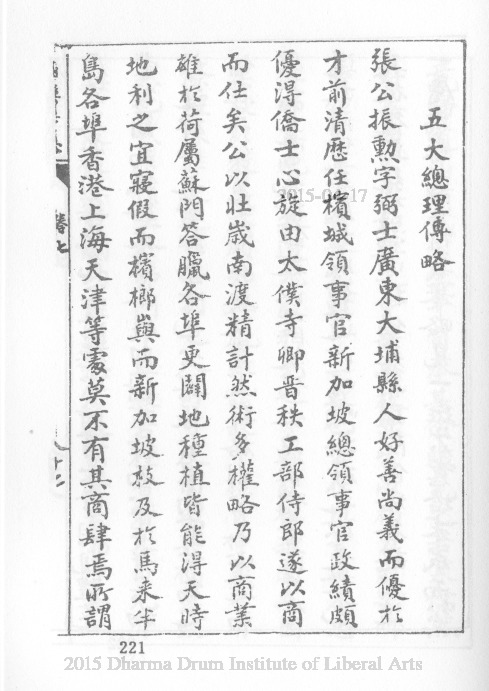 五大總理傳略
張公振勳字弼士廣東大埔縣人好善尚義而優於
才前清歷任檳城領事官新加坡總領事官政績頗
優淂僑士心旋由太僕寺卿晋秩工部侍郎遂以商
而仕矣公以壯歲南渡精計然術多權略乃以商業
雄於荷屬蘇門答臘各埠更闢地種植皆能淂天時
地利之宜寢假而檳榔嶼而新加坡枝及於馬来半
島各埠香港上海天津等處莫不有其商肆焉所謂
卷七
221
2015 Dharma Drum Institute of Liberal Arts